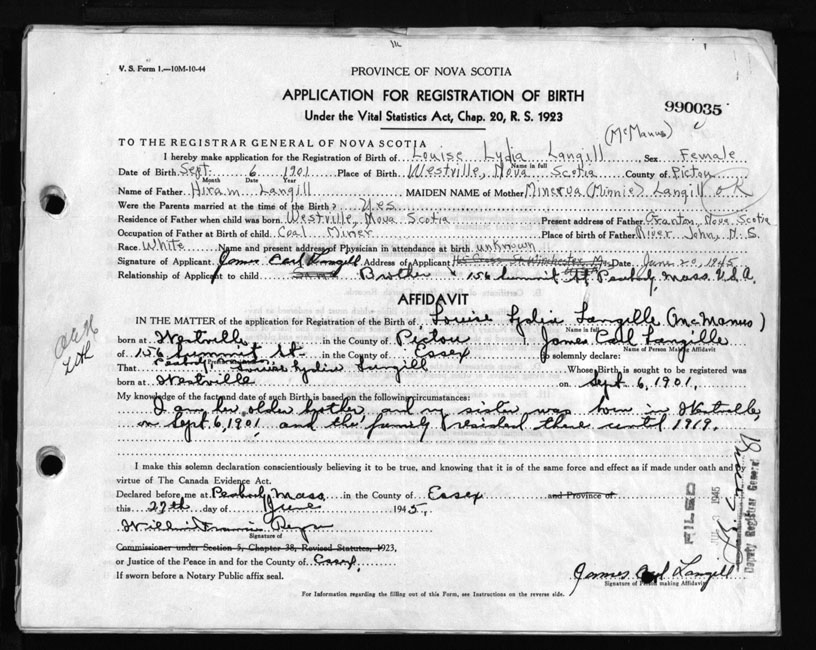 V. S. Form 1.—10M-10-44
PROVINCE OF NOVA SCOTIA
APPLICATION FOR REGISTRATION OF BIRTH
990035
Under the Vital Statistics Act, Chap. 20, R. S. 1923
TO THE REGISTRAR GENERAL OF NOVA SCOTIA
(McManus)
I hereby make application for the Registration of Birth of Louise Lydia Langill Sex Female
Name in full
Date of Birth Sept. 6 1901 Place of Birth Westville, Nova Scotia County of Pictou
Month Date Year
Name of Father Hiram Langill MAIDEN NAME of Mother Minerva (Minnie) Langill OK
Were the Parents married at the time of the Birth? Yes
Residence of Father when child was born Westville, Nova Scotia Present address of Father Granton, Nova Scotia
Occupation of Father at Birth of child Coal Miner Place of birth of Father River John, N. S.
Race White Name and present address of Physician in attendance at birth unknown
Signature of Applicant James Carl Langill Address of Applicant Date June 20, 1945
Relationship of Applicant to child Brother 156 Summit St Peabody, Mass. U.S.A.
AFFIDAVIT
IN THE MATTER of the application for Registration of the Birth of Louise Lydia Langille (McManus)
Name in full
born at Westville in the County of Pictou I James Carl Langille
Name of Person Making Affidavit
of 156 Summit St. in the County of Essex do solemnly declare:
Peabody,
That Louise Lydia Langill Whose Birth is sought to be registered was
born at Westville on Sept 6, 1901.
My knowledge of the fact and date of such Birth is based on the following circumstances:
I am her older brother, and my sister was born in Westville,
on Sept. 6, 1901 and the family resided there until 1919.
I make this solemn declaration conscientiously believing it to be true, and knowing that it is of the same force and effect as if made under oath and by
virtue of The Canada Evidence Act.
Declared before me at Peabody, Mass. in the County of Essex and Province of
this 27th day of June 1945.
William Francis
Signature of
Commissioner under Section 5, Chapter 38, Revised Statutes, 1923,
or Justice of the Peace in and for the County of Essex.
If sworn before a Notary Public affix seal.
James Carl Langill
Signature of Person making Affidavit
For Information regarding the filling out of this Form, see Instructions on the reverse side.
FILED
1945
Deputy Registrar General